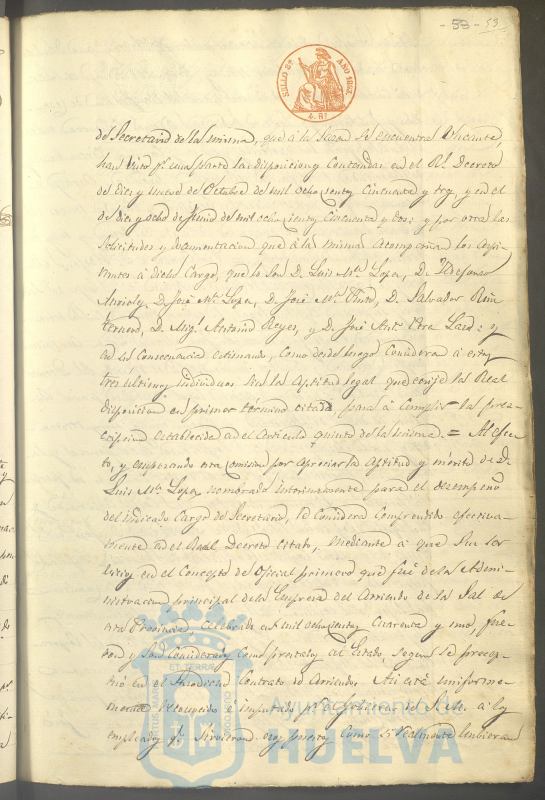 - 53 - 53
SELLO 8º AÑO 1862
4 Rs
de Secretario de la misma, que á la se encuentra Vacante,
han visto pr. una parte las disposiciones contenidas en el Rl. Decreto
de diez y nueve de Octubre de mil ocho cientos cincuenta y tres, y en el
de diez y ocho de Junio de mil ocho cientos cincuenta y dos; y por otra las
solicitudes y documentacion que á las mismas acompañan los Aspi-
rantes á dicho Cargo, que lo son D. Luis Ma. Lopez, D. Ildefonso
D. José Ma. Lopez, D. José Ma. D. Salvador
D. Migl. Antonio Reyes, y D. José Anto. y
en su consecuencia estimando, como desde luego considera á estos
tres ultimos individuos sin la aptitud legal que exije la Real
disposicion en primer término citada para cumplir las pres-
cripciones establecida en el Articulo quinto de la misma. = Al efec-
to, y empezando esta comision por apreciar la aptitud y mérito de D.
Luis Ma. Lopez, nombrado interinamente para el desempeño
del indicado cargo de Secretario, le considera comprendido efectiva-
mente en el Real Decreto citado, mediante á que sus ser-
vicios en el concepto de Oficial primero que fué de la Admi-
nistracion principal de la Empresa del Arriendo de la Sal de
esta Provincia, celebrado en mil ochocientos cuarenta y uno, fue-
ron y son considerados como prestados al Estado, segun se
en el contrato de Arriendo. Asi uniforme-
mente reconocido é pr. el gobierno de S.M. á los
empleados qe. sirvieron como si realmente hubieran
AYUNTAMIENTO DE
HUELVA